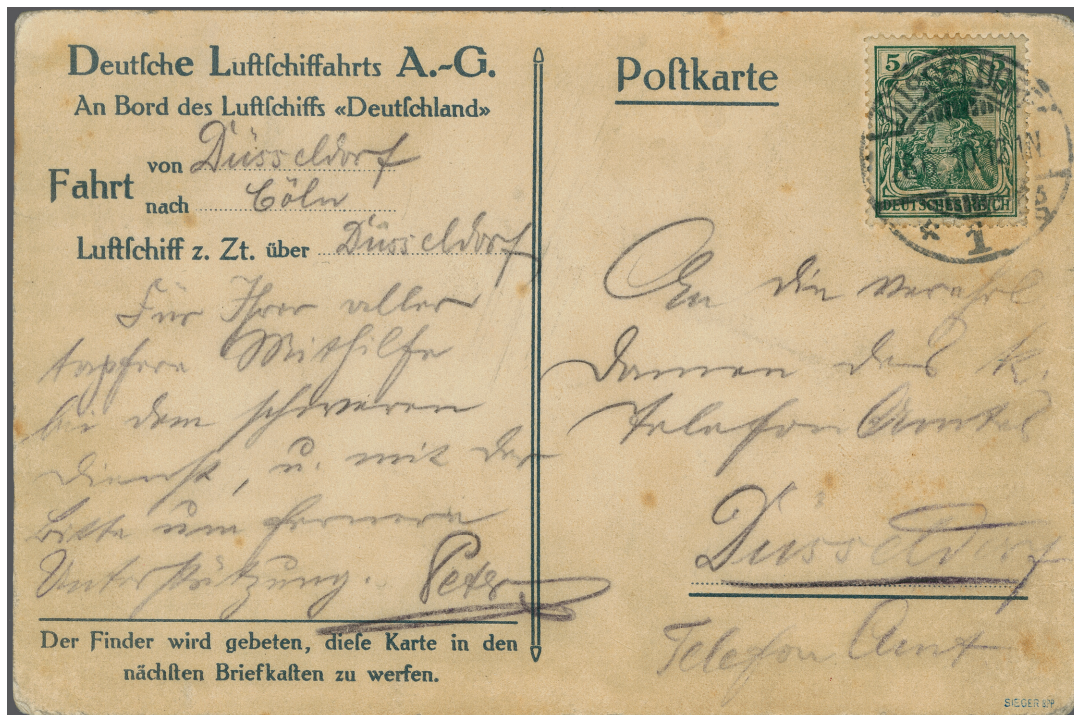 Deutſche Luftſchiffahrts A.-G.
An Bord des Luftſchiffs «Deutſchland»
Fahrt von Düsseldorf
nach Cöln
Luftſchiff z. Zt. über Düsseldorf
Für Ihrer aller
tapfere Mithilfe
bei dem schweren
Dienst, u. mit der
Bitte um fernere
Unterstützung. Peter
Der Finder wird gebeten, dieſe Karte in den
nächſten Briefkaſten zu werfen.
Poſtkarte
5 5
DEUTSCHES REICH
DÜSSELDORF
1
An die verehrl
Damen des K.
Telefon Amtes
Düsseldorf
Telefon Amt
SIEGER